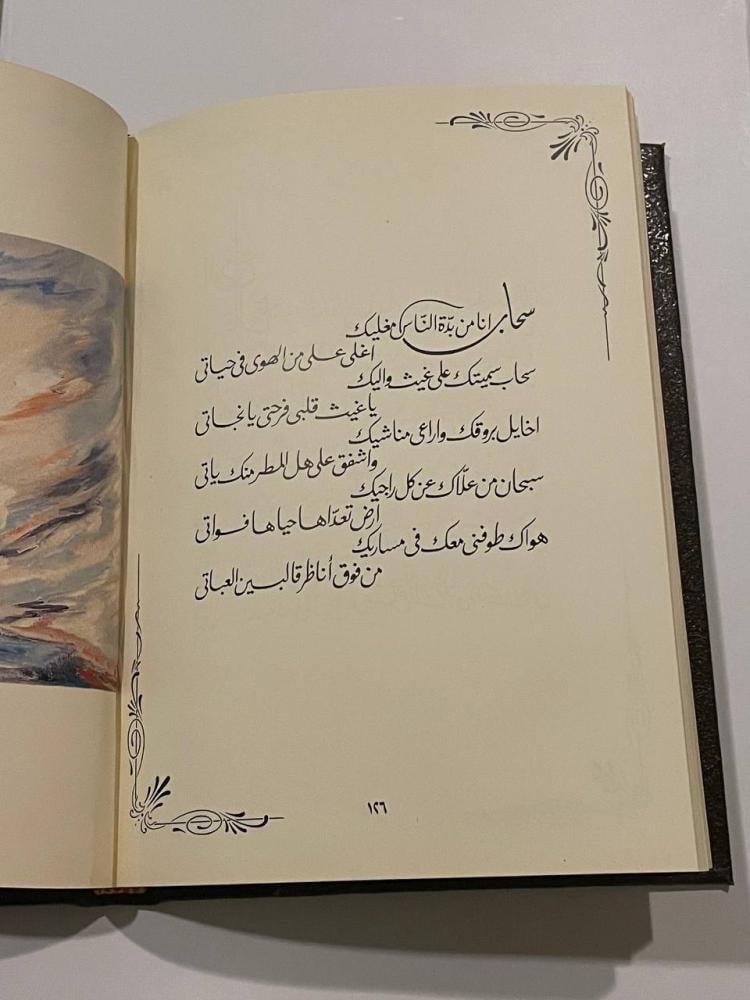 سحاب انا من بدّة النّاس مغليك
اغلى على من الهوى فى حياتى
سحاب سميتك على غيث واليك
يا غيث قلبى فرحتى يا نجاتى
اخايل بروقك واراعى مناشيك
واشفق على هل المطر منك ياتى
سبحان من علّاك عن كل راجيك
أرض تعدّاها حياها فواتى
هواك طوفنى معك فى مساريك
من فوق أناظر قالبين العباتى
١٢٦